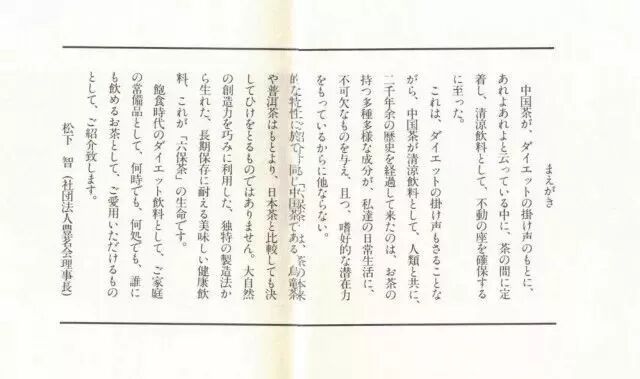 まえがき
中国茶が、ダイエットの掛け声のもとに、
あれよあれよと云っている中に、茶の間に定
着し、清涼飲料として、不動の座を確保する
に至った。
これは、ダイエットの掛け声もさることな
がら、中国茶が清涼飲料として、人類と共に、
二千年余の歴史を経過して来たのは、お茶の
持つ多種多様な成分が、私達の日常生活に、
不可欠なものを与え、且つ、嗜好的な潜在力
をもっているからに他ならない。
「六保茶」は、茶の本来
的な特性に於て、同じ中国茶である烏竜茶
や普洱茶はもとより、日本茶と比較しても決
してひけをとるものではありません。大自然
の創造力を巧みに利用した、独特の製造法か
ら生れた、長期保存に耐える美味しい健康飲
料、これが「六保茶」の生命です。
飽食時代のダイエット飲料として、ご家庭
の常備品として、何時でも、何処でも、誰に
も飲めるお茶として、ご愛用いただけるもの
として、ご紹介致します。
松下 智（社団法人豊茗会理事長）